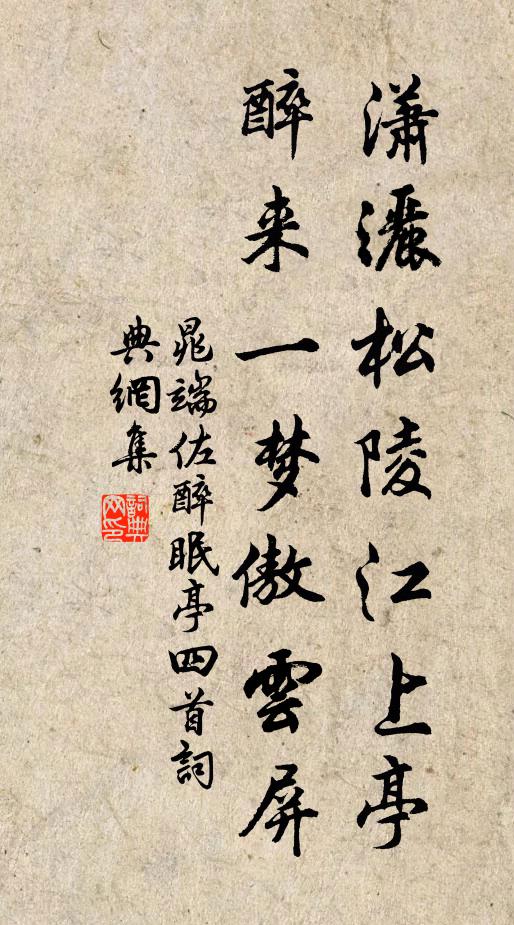 瀟灑松陵江上亭
醉来一梦傲雲屏
晁端佐醉眠亭四首詞
典網集
詞典网印